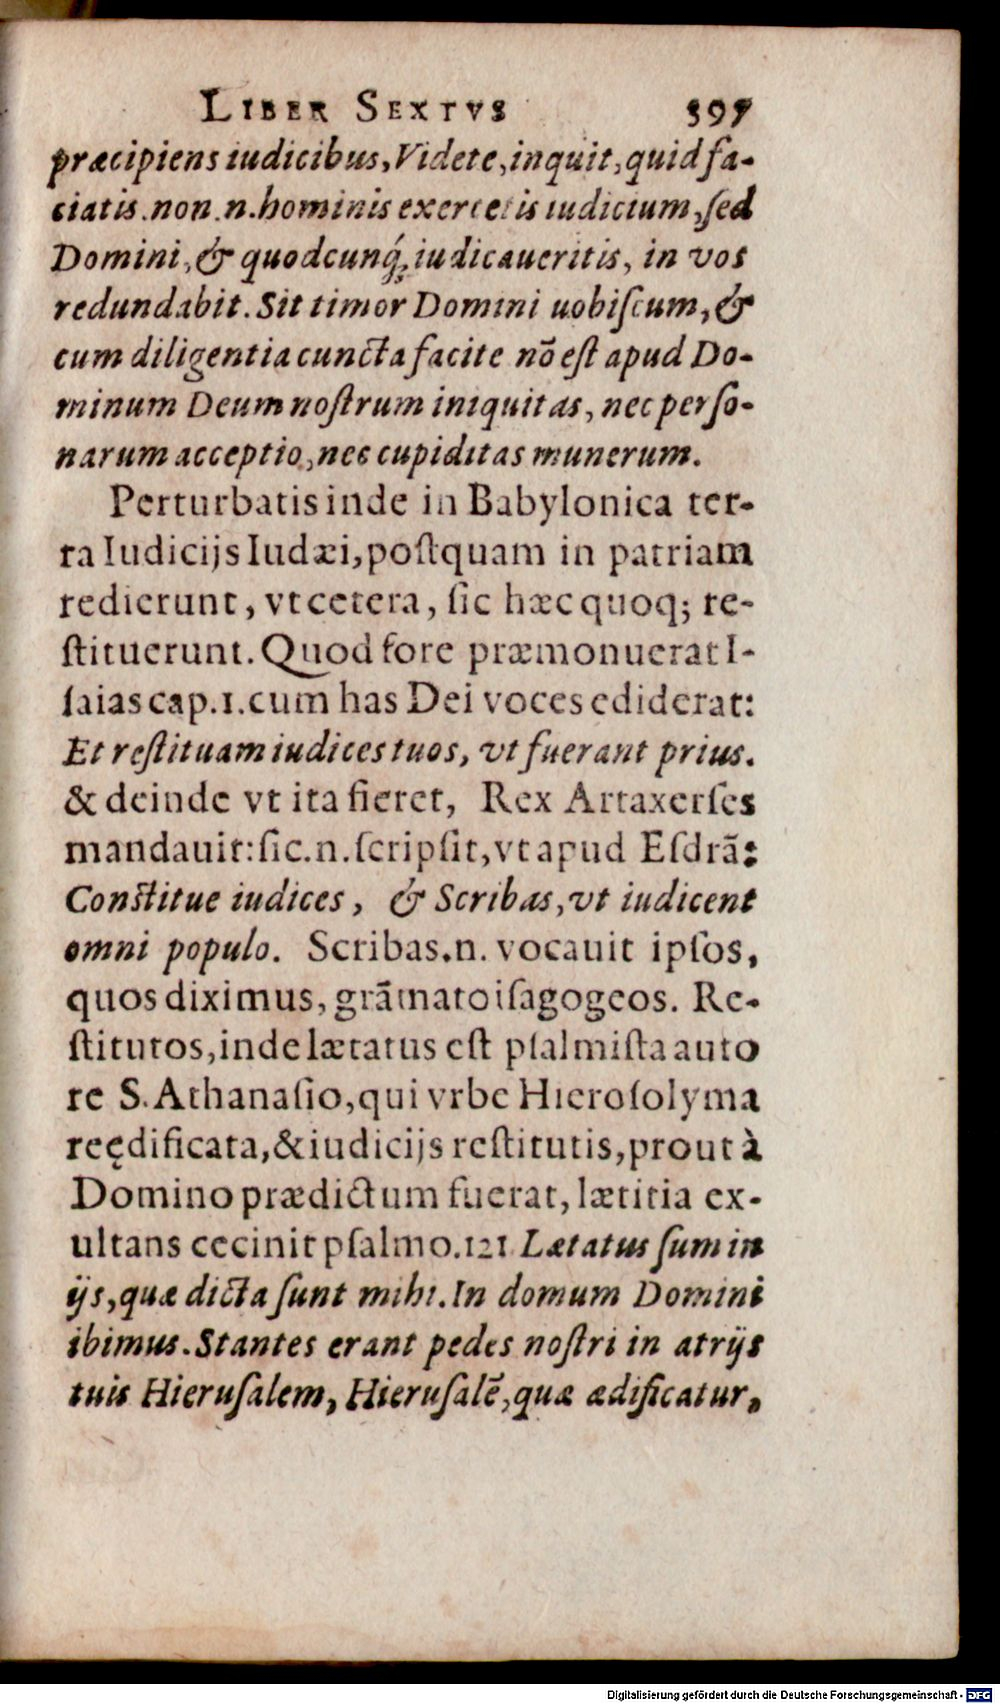 LIBER SEXTVS 597
præcipiens iudicibus, Videte, inquit, quid fa-
ciatis. non .n. hominis exercetis iudicium, ſed
Domini, & quodcunq́; iudicaueritis, in vos
redundabit. Sit timor Domini uobiſcum, &
cum diligentia cuncta facite nō eſt apud Do-
minum Deum noſtrum iniquitas, nec perſo-
narum acceptio, nec cupiditas munerum.
Perturbatis inde in Babylonica ter-
ra Iudicijs Iudæi, poſtquam in patriam
redierunt, vt cetera, ſic hæc quoq; re-
ſtituerunt. Quod fore præmonuerat I-
ſaias cap. 1. cum has Dei voces ediderat:
Et reſtituam iudices tuos, vt fuerant prius.
& deinde vt ita fieret, Rex Artaxerſes
mandauit: ſic .n. ſcripſit, vt apud Eſdrã:
Conſtitue iudices, & Scribas, vt iudicent
omni populo. Scribas .n. vocauit ipſos,
quos diximus, grãmatoiſagogeos. Re-
ſtitutos, inde lætatus eſt pſalmiſta auto
re S. Athanaſio, qui vrbe Hieroſolyma
reędificata, & iudicijs reſtitutis, prout à
Domino prædictum fuerat, lætitia ex-
ultans cecinit pſalmo. 121 Lætatus ſum in
ijs, quæ dicta ſunt mihi. In domum Domini
ibimus. Stantes erant pedes noſtri in atrijs
tuis Hieruſalem, Hieruſalẽ, quæ ædificatur,
Digitalisierung gefördert durch die Deutsche Forschungsgemeinschaft - DFG